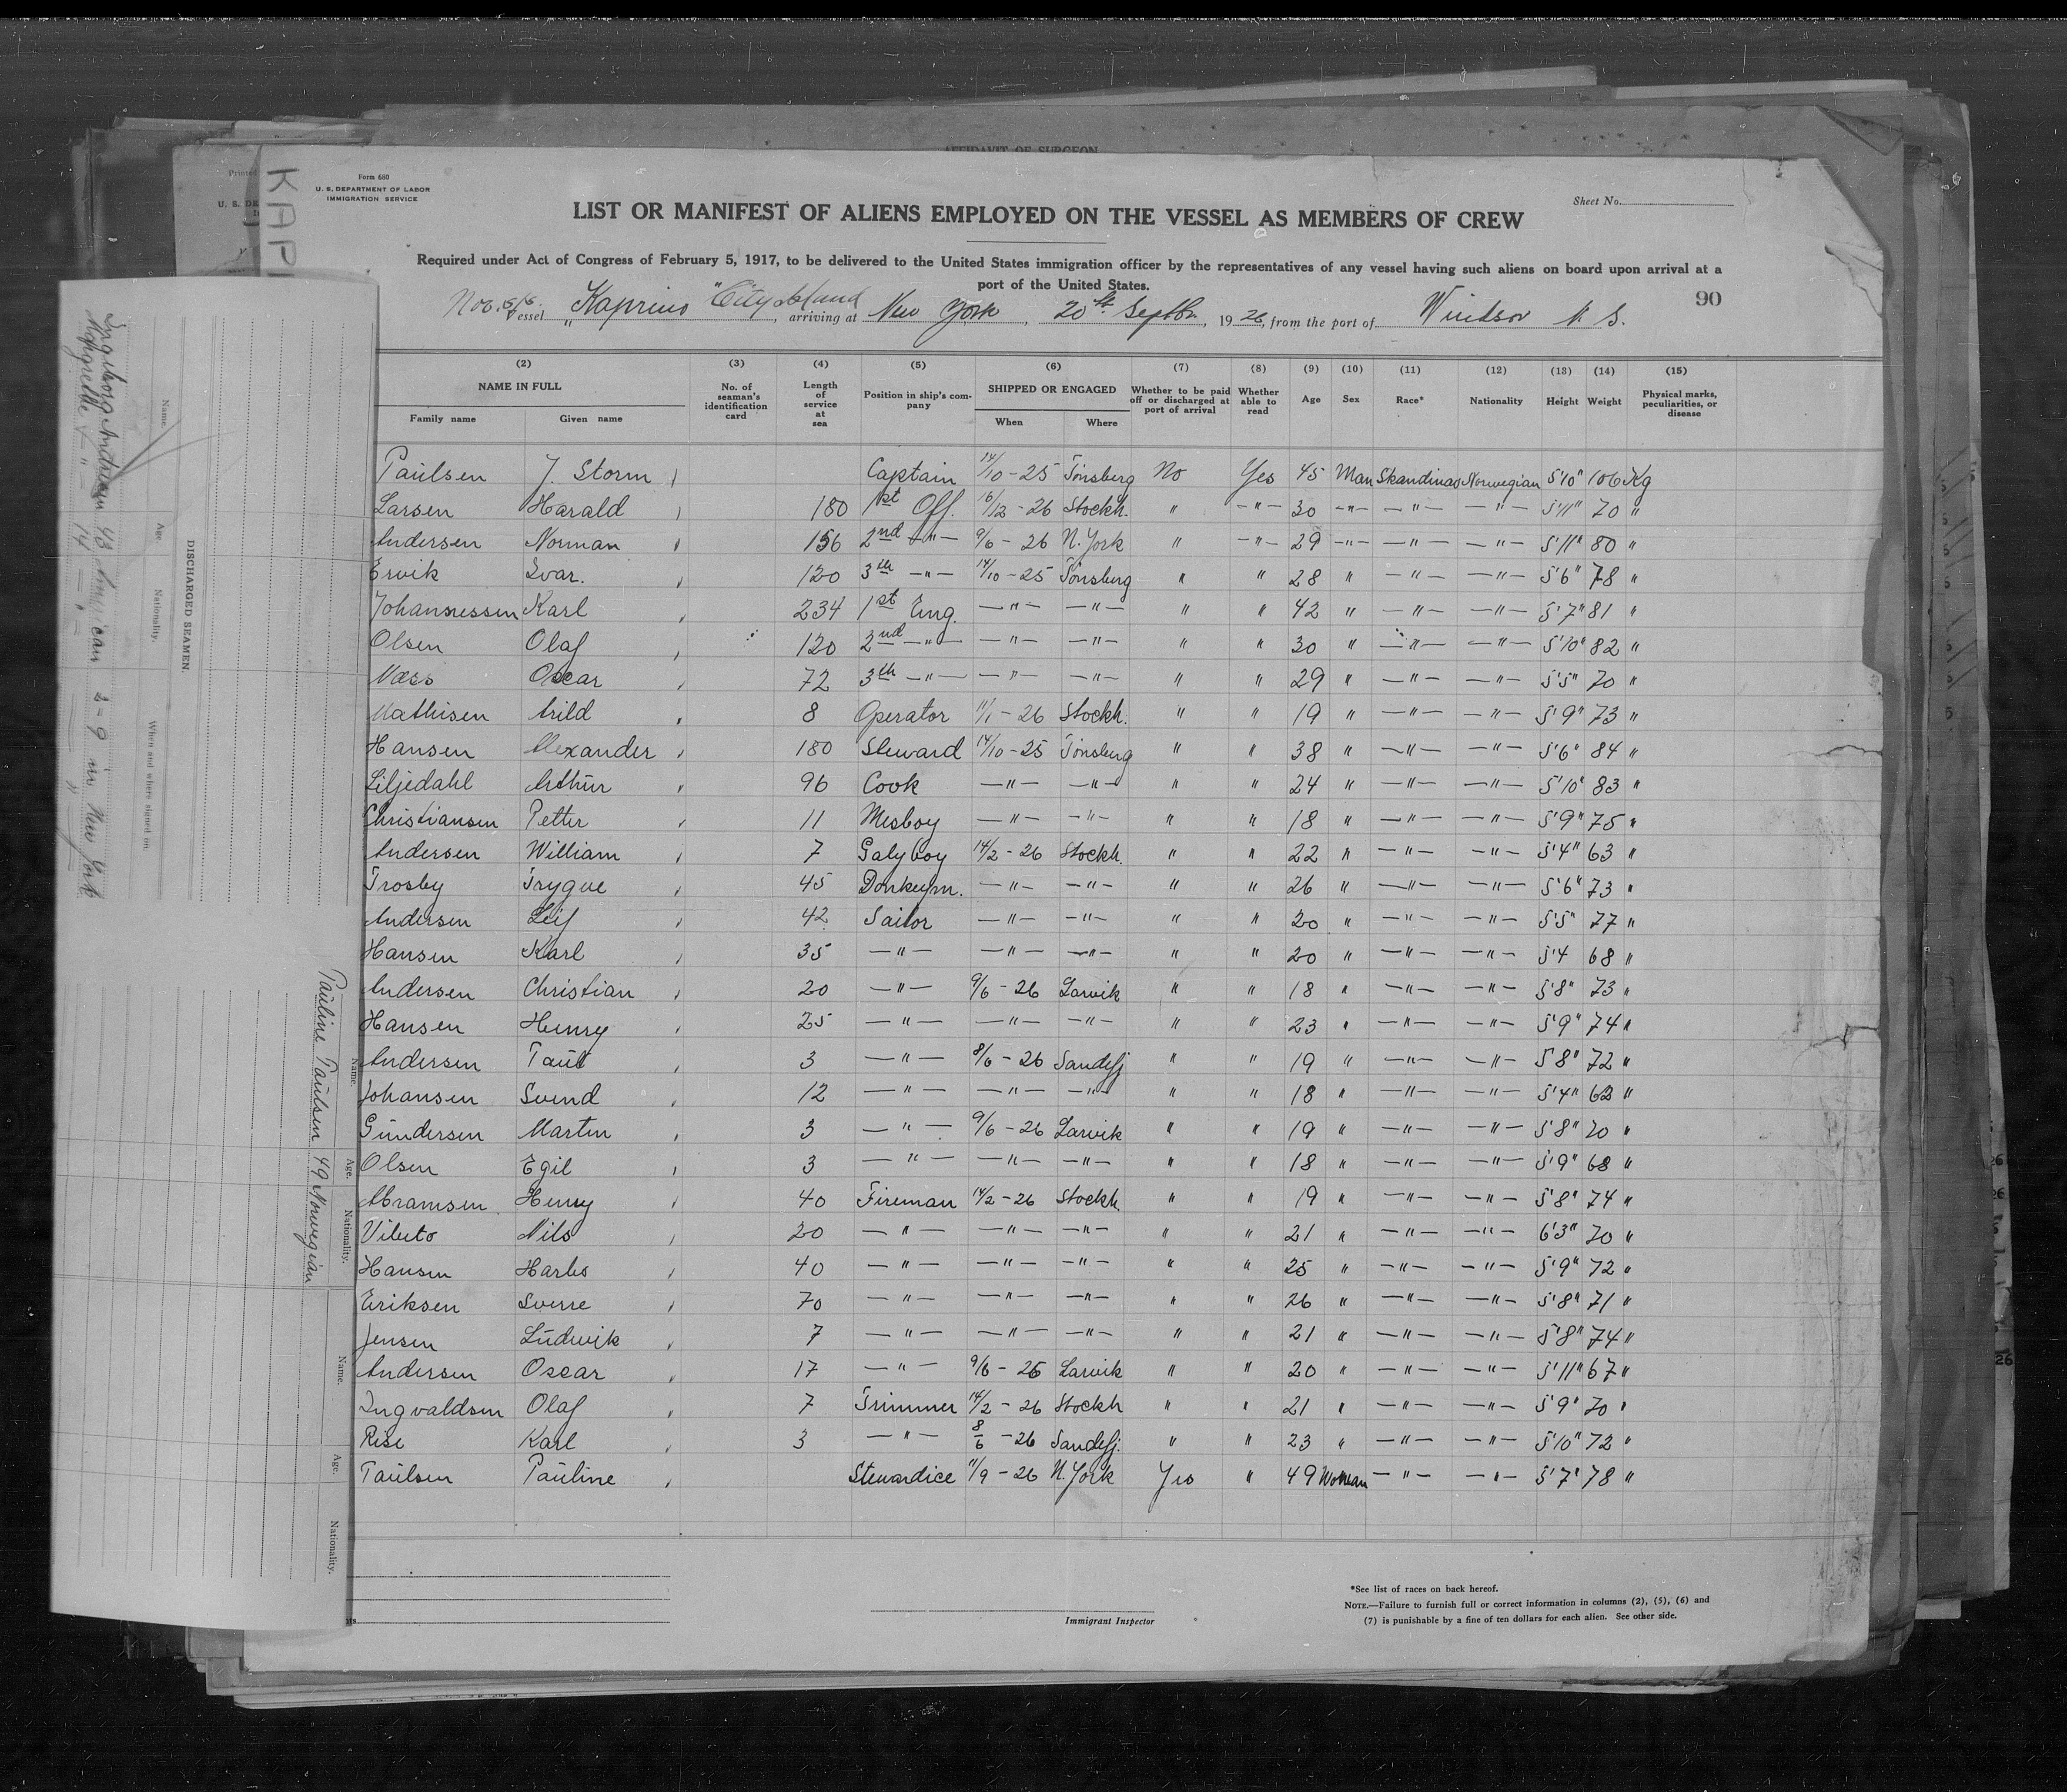 AFFIDAVIT OF SURGEON
Printed
U. S. DE
KAPI
Form 680
U. S. DEPARTMENT OF LABOR
IMMIGRATION SERVICE
Sheet No.
LIST OR MANIFEST OF ALIENS EMPLOYED ON THE VESSEL AS MEMBERS OF CREW
Required under Act of Congress of February 5, 1917, to be delivered to the United States immigration officer by the representatives of any vessel having such aliens on board upon arrival at a
port of the United States.
90
Nor. s/s. Vessel "Kaprino" City Island, arriving at New York, 20th Septbr., 1926, from the port of Windsor N. S.
(2) (3) (4) (5) (6) (7) (8) (9) (10) (11) (12) (13) (14) (15)
NAME IN FULL
Family name Given name
No. of seaman's identification card
Length of service at sea
Position in ship's company
SHIPPED OR ENGAGED
When Where
Whether to be paid off or discharged at port of arrival
Whether able to read
Age
Sex
Race*
Nationality
Height
Weight
Physical marks, peculiarities, or disease
Paulsen J. Storm Captain 14/10-25 Tönsberg No Yes 45 Man Skandinav Norwegian 5'10" 106 Kg
Larsen Harald 180 1st Off. 16/12-26 Stockh. " -"- 30 -"- -"- -"- 5'11" 70 "
Andersen Norman 156 2nd -"- 9/6-26 N. York " -"- 29 -"- -"- -"- 5'11" 80 "
Ervik Ivar. 120 3th -"- 14/10-25 Tönsberg " " 28 " -"- -"- 5'6" 78 "
Johannessen Karl 234 1st Eng. -"- -"- " " 42 " -"- -"- 5'7" 81 "
Olsen Olaf 120 2nd -"- -"- -"- " " 30 " -"- -"- 5'10" 82 "
Næss Oscar 72 3th -"- -"- -"- " " 29 " -"- -"- 5'5" 70 "
Mathisen Arild 8 Operator 11/1-26 Stockh. " " 19 " -"- -"- 5'9" 73 "
Hansen Alexander 180 Steward 14/10-25 Tönsberg " " 38 " -"- -"- 5'6" 84 "
Liljedahl Arthur 96 Cook -"- -"- " " 24 " -"- -"- 5'10" 83 "
Christiansen Petter 11 Mesboy -"- -"- " " 18 " -"- -"- 5'9" 75 "
Andersen William 7 Galyboy 14/2-26 Stockh. " " 22 " -"- -"- 5'4" 63 "
Trosby Trygve 45 Donkeym. -"- -"- " " 26 " -"- -"- 5'6" 73 "
Andersen Leif 42 Sailor -"- -"- " " 20 " -"- -"- 5'5" 77 "
Hansen Karl 35 -"- -"- -"- " " 20 " -"- -"- 5'4 68 "
Andersen Christian 20 -"- 9/6-26 Larvik " " 18 " -"- -"- 5'8" 73 "
Hansen Henry 25 -"- -"- -"- " " 23 " -"- -"- 5'9" 74 "
Andersen Paul 3 -"- 8/6-26 Sandefj " " 19 " -"- -"- 5'8" 72 "
Johansen Svend 12 -"- -"- -"- " " 18 " -"- -"- 5'4" 62 "
Gundersen Martin 3 -"- 9/6-26 Larvik " " 19 " -"- -"- 5'8" 70 "
Olsen Egil 3 -"- -"- -"- " " 18 " -"- -"- 5'9" 68 "
Abramsen Henry 40 Fireman 14/2-26 Stockh. " " 19 " -"- -"- 5'8" 74 "
Nils 20 -"- -"- -"- " " 21 " -"- -"- 6'3" 70 "
Hansen 40 -"- -"- -"- " " 25 " -"- -"- 5'9" 72 "
Eriksen Sverre 70 -"- -"- -"- " " 26 " -"- -"- 5'8" 71 "
Jensen Ludwik 7 -"- -"- -"- " " 21 " -"- -"- 5'8" 74 "
Andersen Oscar 17 -"- 9/6-26 Larvik " " 20 " -"- -"- 5'11" 67 "
Ingvaldsen Olaf 7 Trimmer 14/2-26 Stockh " " 21 " -"- -"- 5'9" 70 "
Rise Karl 3 -"- 8/6-26 Sandefj. " " 23 " -"- -"- 5'10" 72 "
Paulsen Pauline Stewardice 11/9-26 N. York Yes " 49 Woman -"- -"- 5'7" 78 "
Immigrant Inspector
*See list of races on back hereof.
NOTE.—Failure to furnish full or correct information in columns (2), (5), (6) and
(7) is punishable by a fine of ten dollars for each alien. See other side.
DISCHARGED SEAMEN.
Name. Age. Nationality. When and where signed on
Ingeborg Andersen 43 American 2-9 in New York
14 " "
Name. Age. Nationality.
Pauline Paulsen 49 Norwegian
Name. Age. Nationality.
26